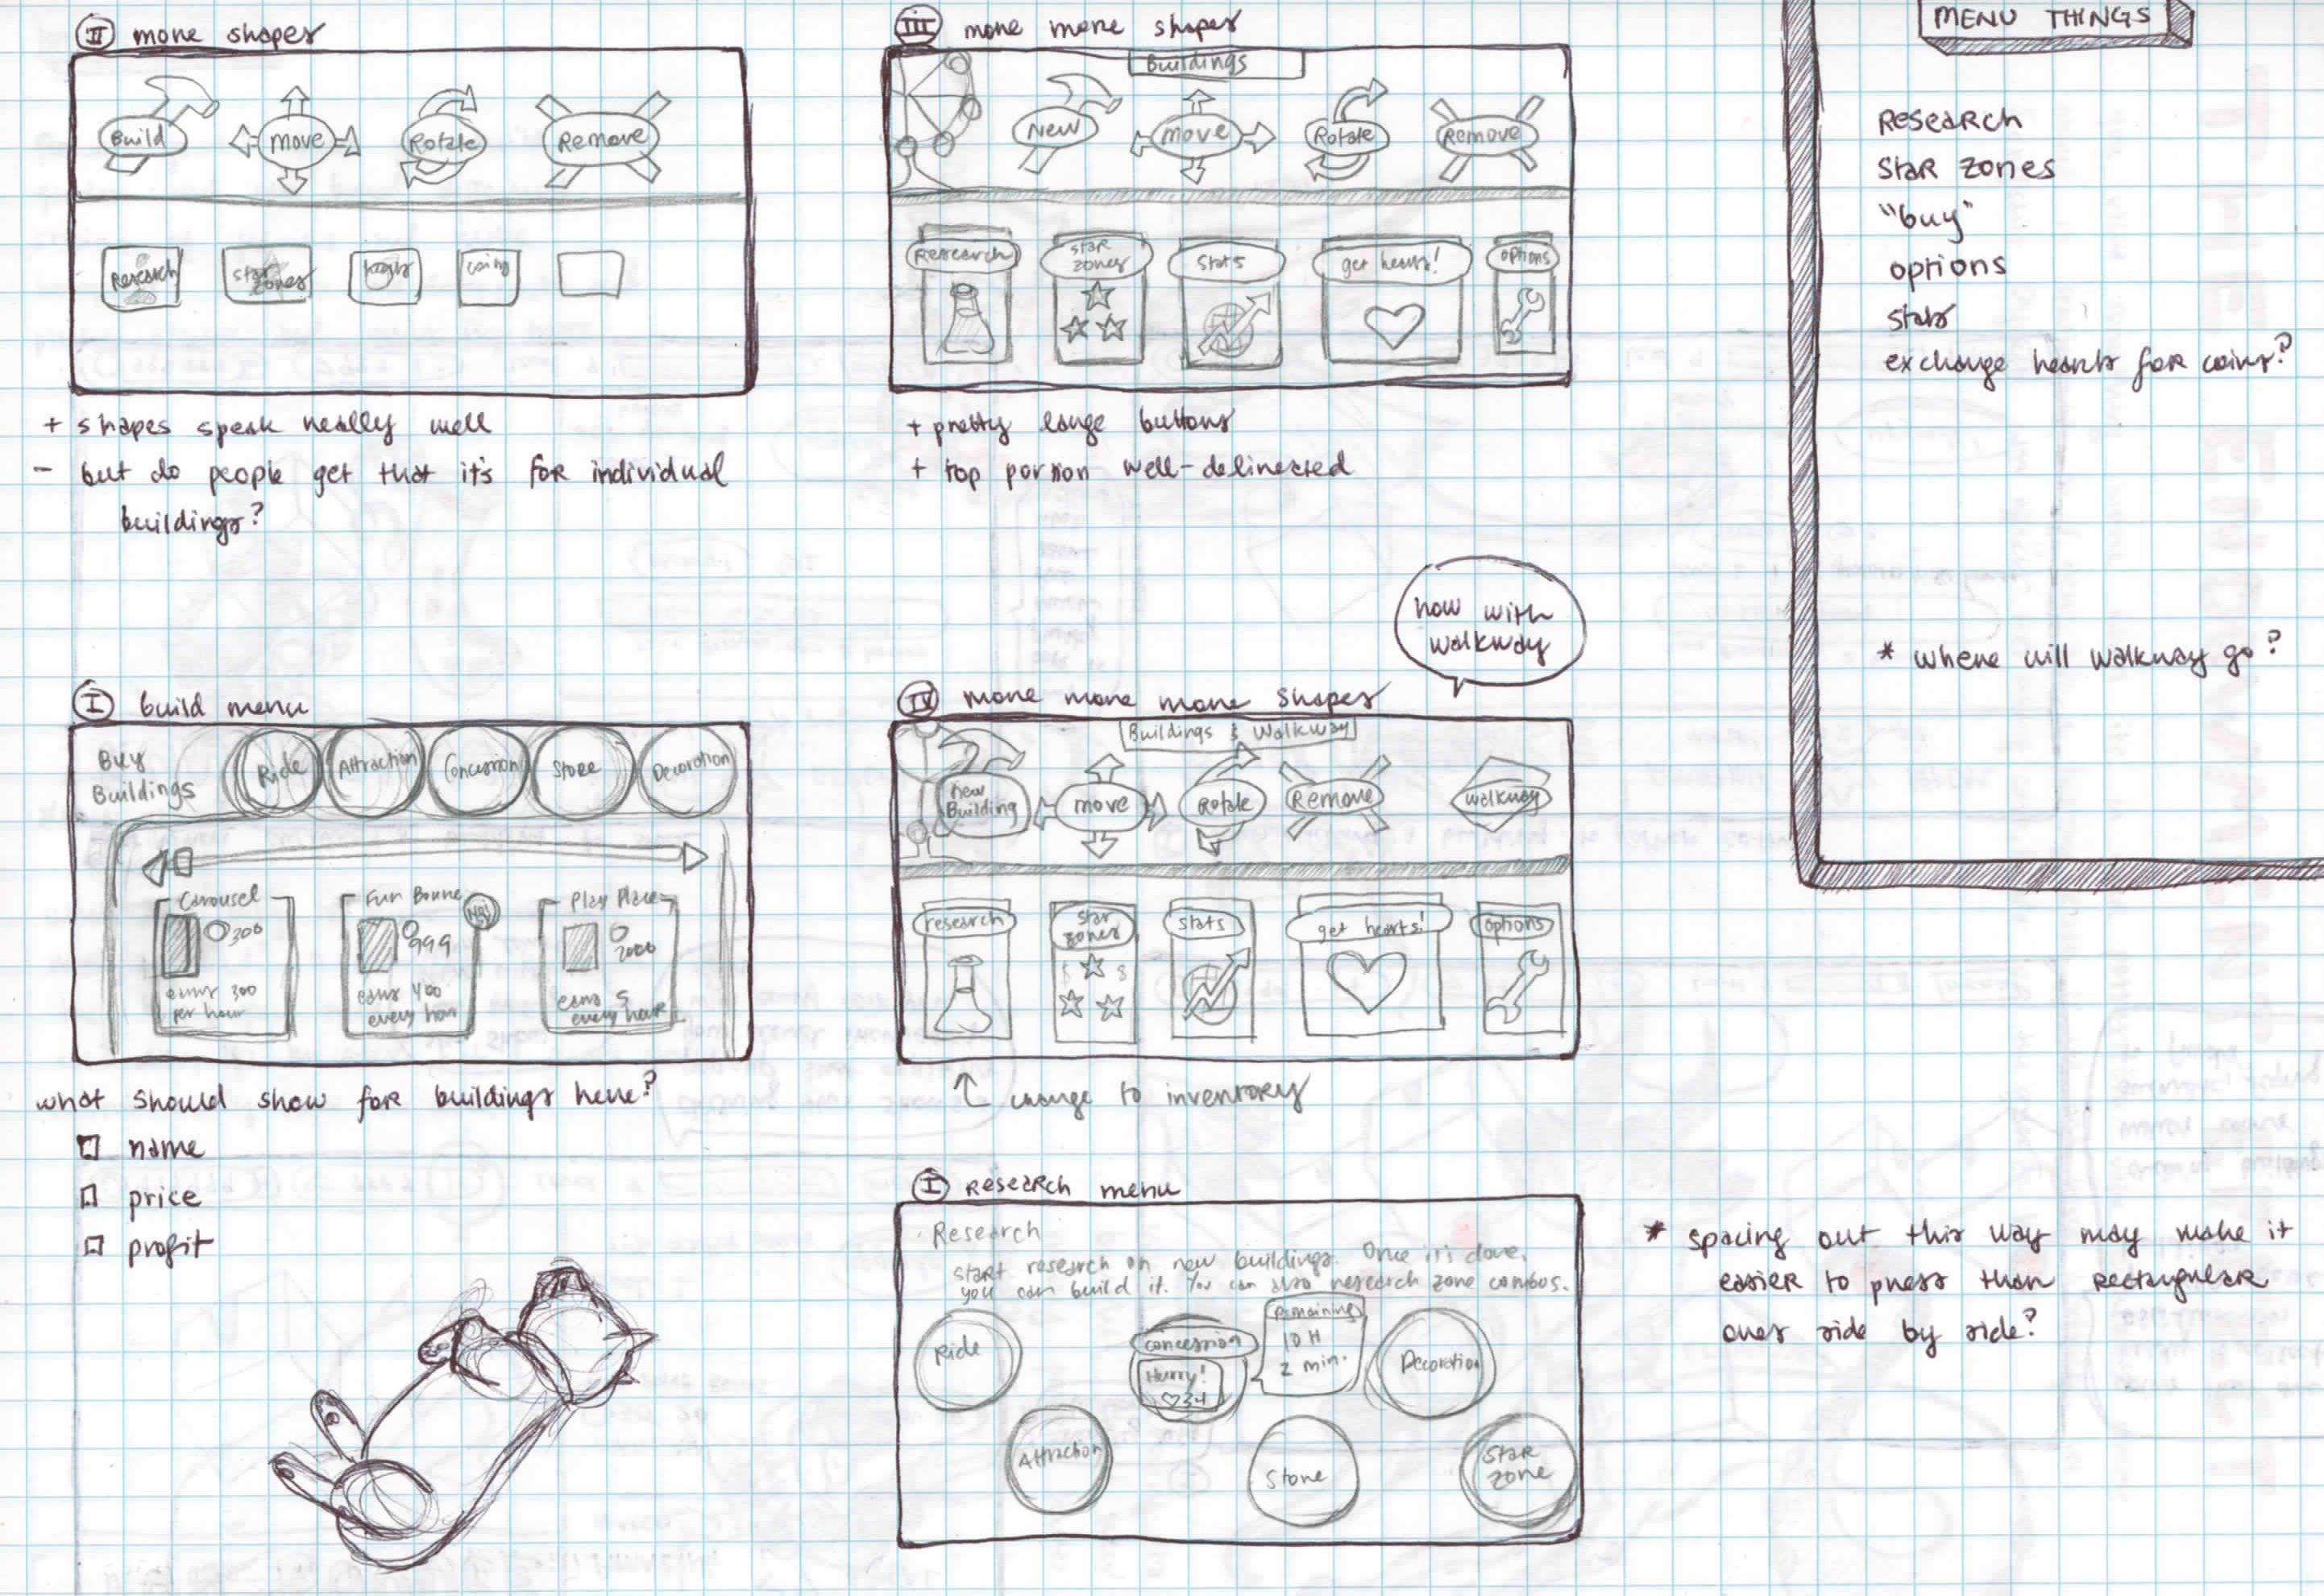 II more shapes
Build
move
Rotate
Remove
Research
star zones
coins
+ shapes speak really well
- but do people get that it's for individual
buildings?
III more more shapes
Buildings
New
move
Rotate
Remove
Research
star
zones
stats
get hearts!
options
+ pretty large buttons
+ top portion well-delineated
MENU THINGS
Research
Star zones
"buy"
options
stats
exchange hearts for coins?
* where will walkway go?
I build menu
Buy
Buildings
Ride
Attraction
Concession
Store
Decoration
Carousel
300
earns 300
per hour
Fun Bounce
999
earns 400
every hour
Play Place
2000
earns 5
every hour
what should show for buildings here?
name
price
profit
now with
walkway
IV more more more shapes
Buildings & Walkway
new
Building
move
Rotate
Remove
walkway
research
star
zones
stats
get hearts!
options
change to inventory
I Research menu
Research
start research on new buildings. Once it's done,
you can build it. You can also research zone combos.
Ride
concession
Hurry!
34
Remaining
10 H
2 min.
Decoration
Attraction
Store
Star
zone
* spacing out this way may make it
easier to press than rectangular
ones side by side?